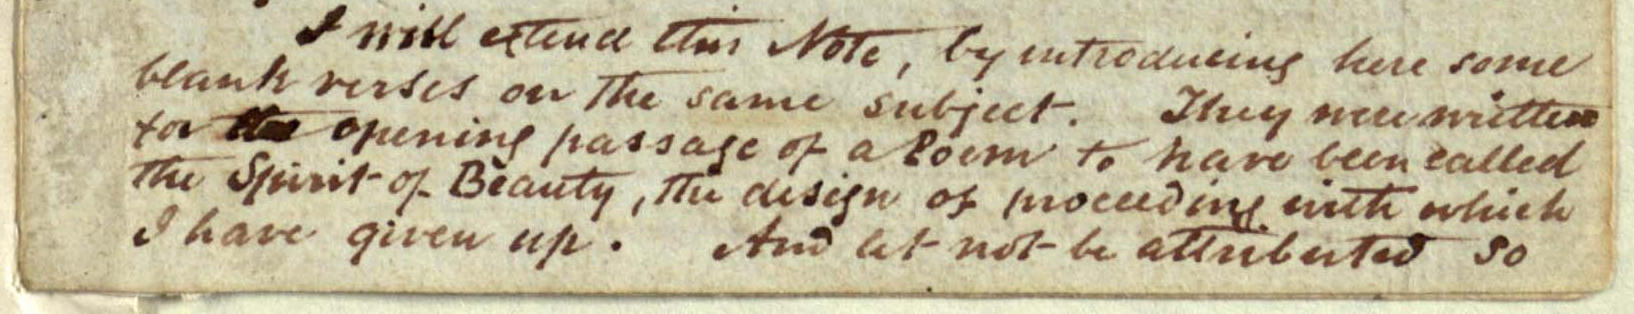 I will extend this Note, by introducing here some
blank verses on the same subject. They were written
for opening passage of a Poem to have been called
the Spirit of Beauty, the design of proceeding with which
I have given up. And let not be attributed so